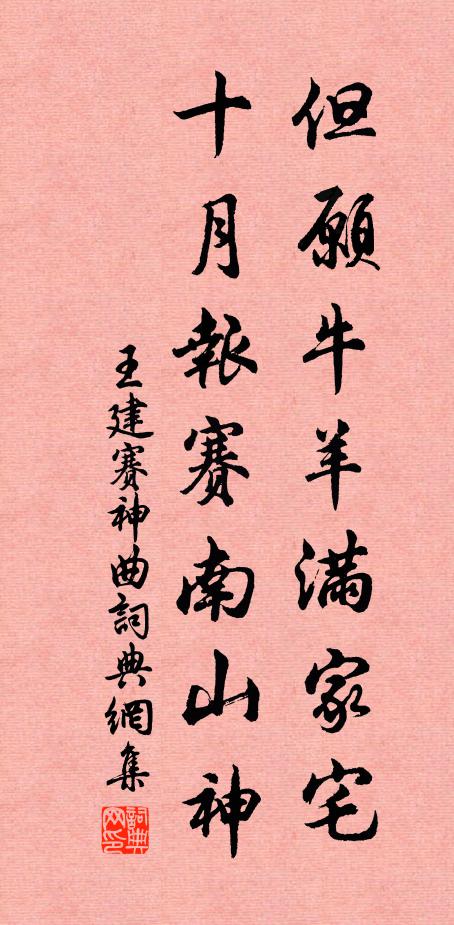 但願牛羊滿家宅
十月報賽南山神
王建賽神曲詞典網集
詞典网印